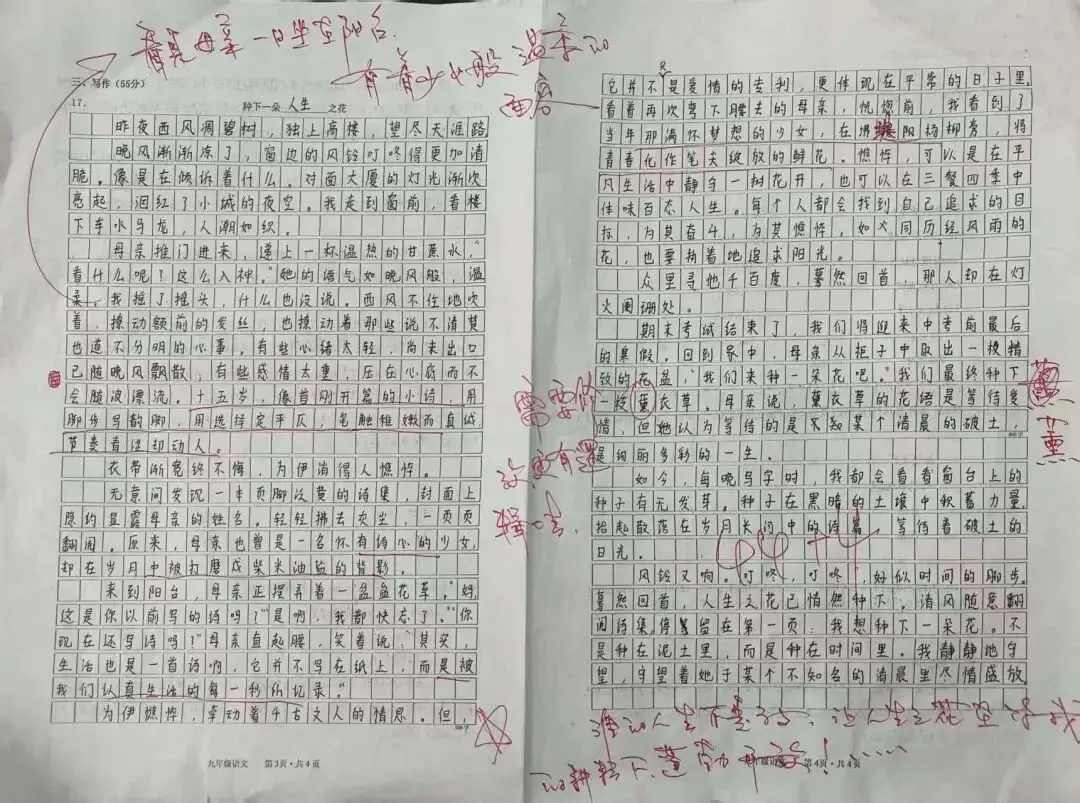 看见母亲一日坐在阳台
有着少女般温柔的
面容
三、写作（55分）
17.
种下一朵 人生 之花
昨夜西风凋碧树，独上高楼，望尽天涯路
晚风渐渐凉了，窗边的风铃叮咚得更加清
脆。像是在倾诉着什么。对面大厦的灯光渐次
亮起，洇红了小城的夜空。我走到窗前，看楼
下车水马龙，人潮如织。
母亲推门进来，递上一杯温热的甘蔗水，“
看什么呢？这么入神。”她的语气如晚风般，温
柔。我摇了摇头，什么也没说。西风不住地吹
着，撩动额前的发丝，也撩动着那些说不清楚
也道不分明的心事。有些心绪太轻，尚未出口
已随晚风飘散，有些感情太重，压在心底而不
会随波漂流。十五岁，像首刚开篇的小诗，用
脚步写韵脚，用选择定平仄，笔触稚嫩而真诚
节奏着涩却动人。
衣带渐宽终不悔，为伊消得人憔悴。
无意间发现一本页脚泛黄的诗集，封面上
隐约显露母亲的姓名。轻轻拂去灰尘，一页页
翻阅。原来，母亲也曾是一名怀有诗心的少女，
却在岁月中被打磨成柴米油盐的背影。
来到阳台，母亲正摆弄着一盆盆花草。“妈，
这是你以前写的诗吗？”“是啊，我都快忘了。”“你
现在还写诗吗？”母亲直起腰，笑着说：“其实，
生活也是一首诗啊，它并不写在纸上，而是被
我们认真生活的每一秒所记录。”
为伊憔悴，牵动着千古文人的情思。但
九年级语文 第3页·共4页
它并不是爱情的专利，更体现在平常的日子里。
看着再次弯下腰去的母亲，恍惚前，我看到了
当年那满怀梦想的少女，在阳杨柳旁，将
青春化作笔尖绽放的鲜花。憔悴，可以是在平
凡生活中静守一树花开，也可以在三餐四季中
体味百态人生。每个人都会找到自己追求的目
标，为其奋斗，为其憔悴，如同历经风雨的
花，也要执着地追求阳光。
众里寻他千百度，蓦然回首，那人却在灯
火阑珊处。
期末考试结束了，我们将迎来中考前最后
的寒假，回到家中，母亲从柜子中取出一枚精
致的花盆，“我们来种一朵花吧。”我们最终种下
一枝薰衣草。母亲说，薰衣草的花语是等待爱
情，但她认为等待的是未知某个清晨的破土，
是绚丽多彩的一生。
如今，每晚写字时，我都会看看窗台上的
种子有无发芽。种子在黑暗的土壤中积蓄力量，
拾起散落在岁月长河中的诗篇，等待着破土的
日光。
风铃又响。叮咚，叮咚，好似时间的脚步。
蓦然回首，人生之花已悄然种下。清风随意翻
阅诗集，停留在第一页：我想种下一朵花。不
是种在泥土里，而是种在时间里。我静静地守
望，守望着她于某个不知名的清晨里尽情盛放
薰
需要修
改更有逻
辑些
第4页·共4页